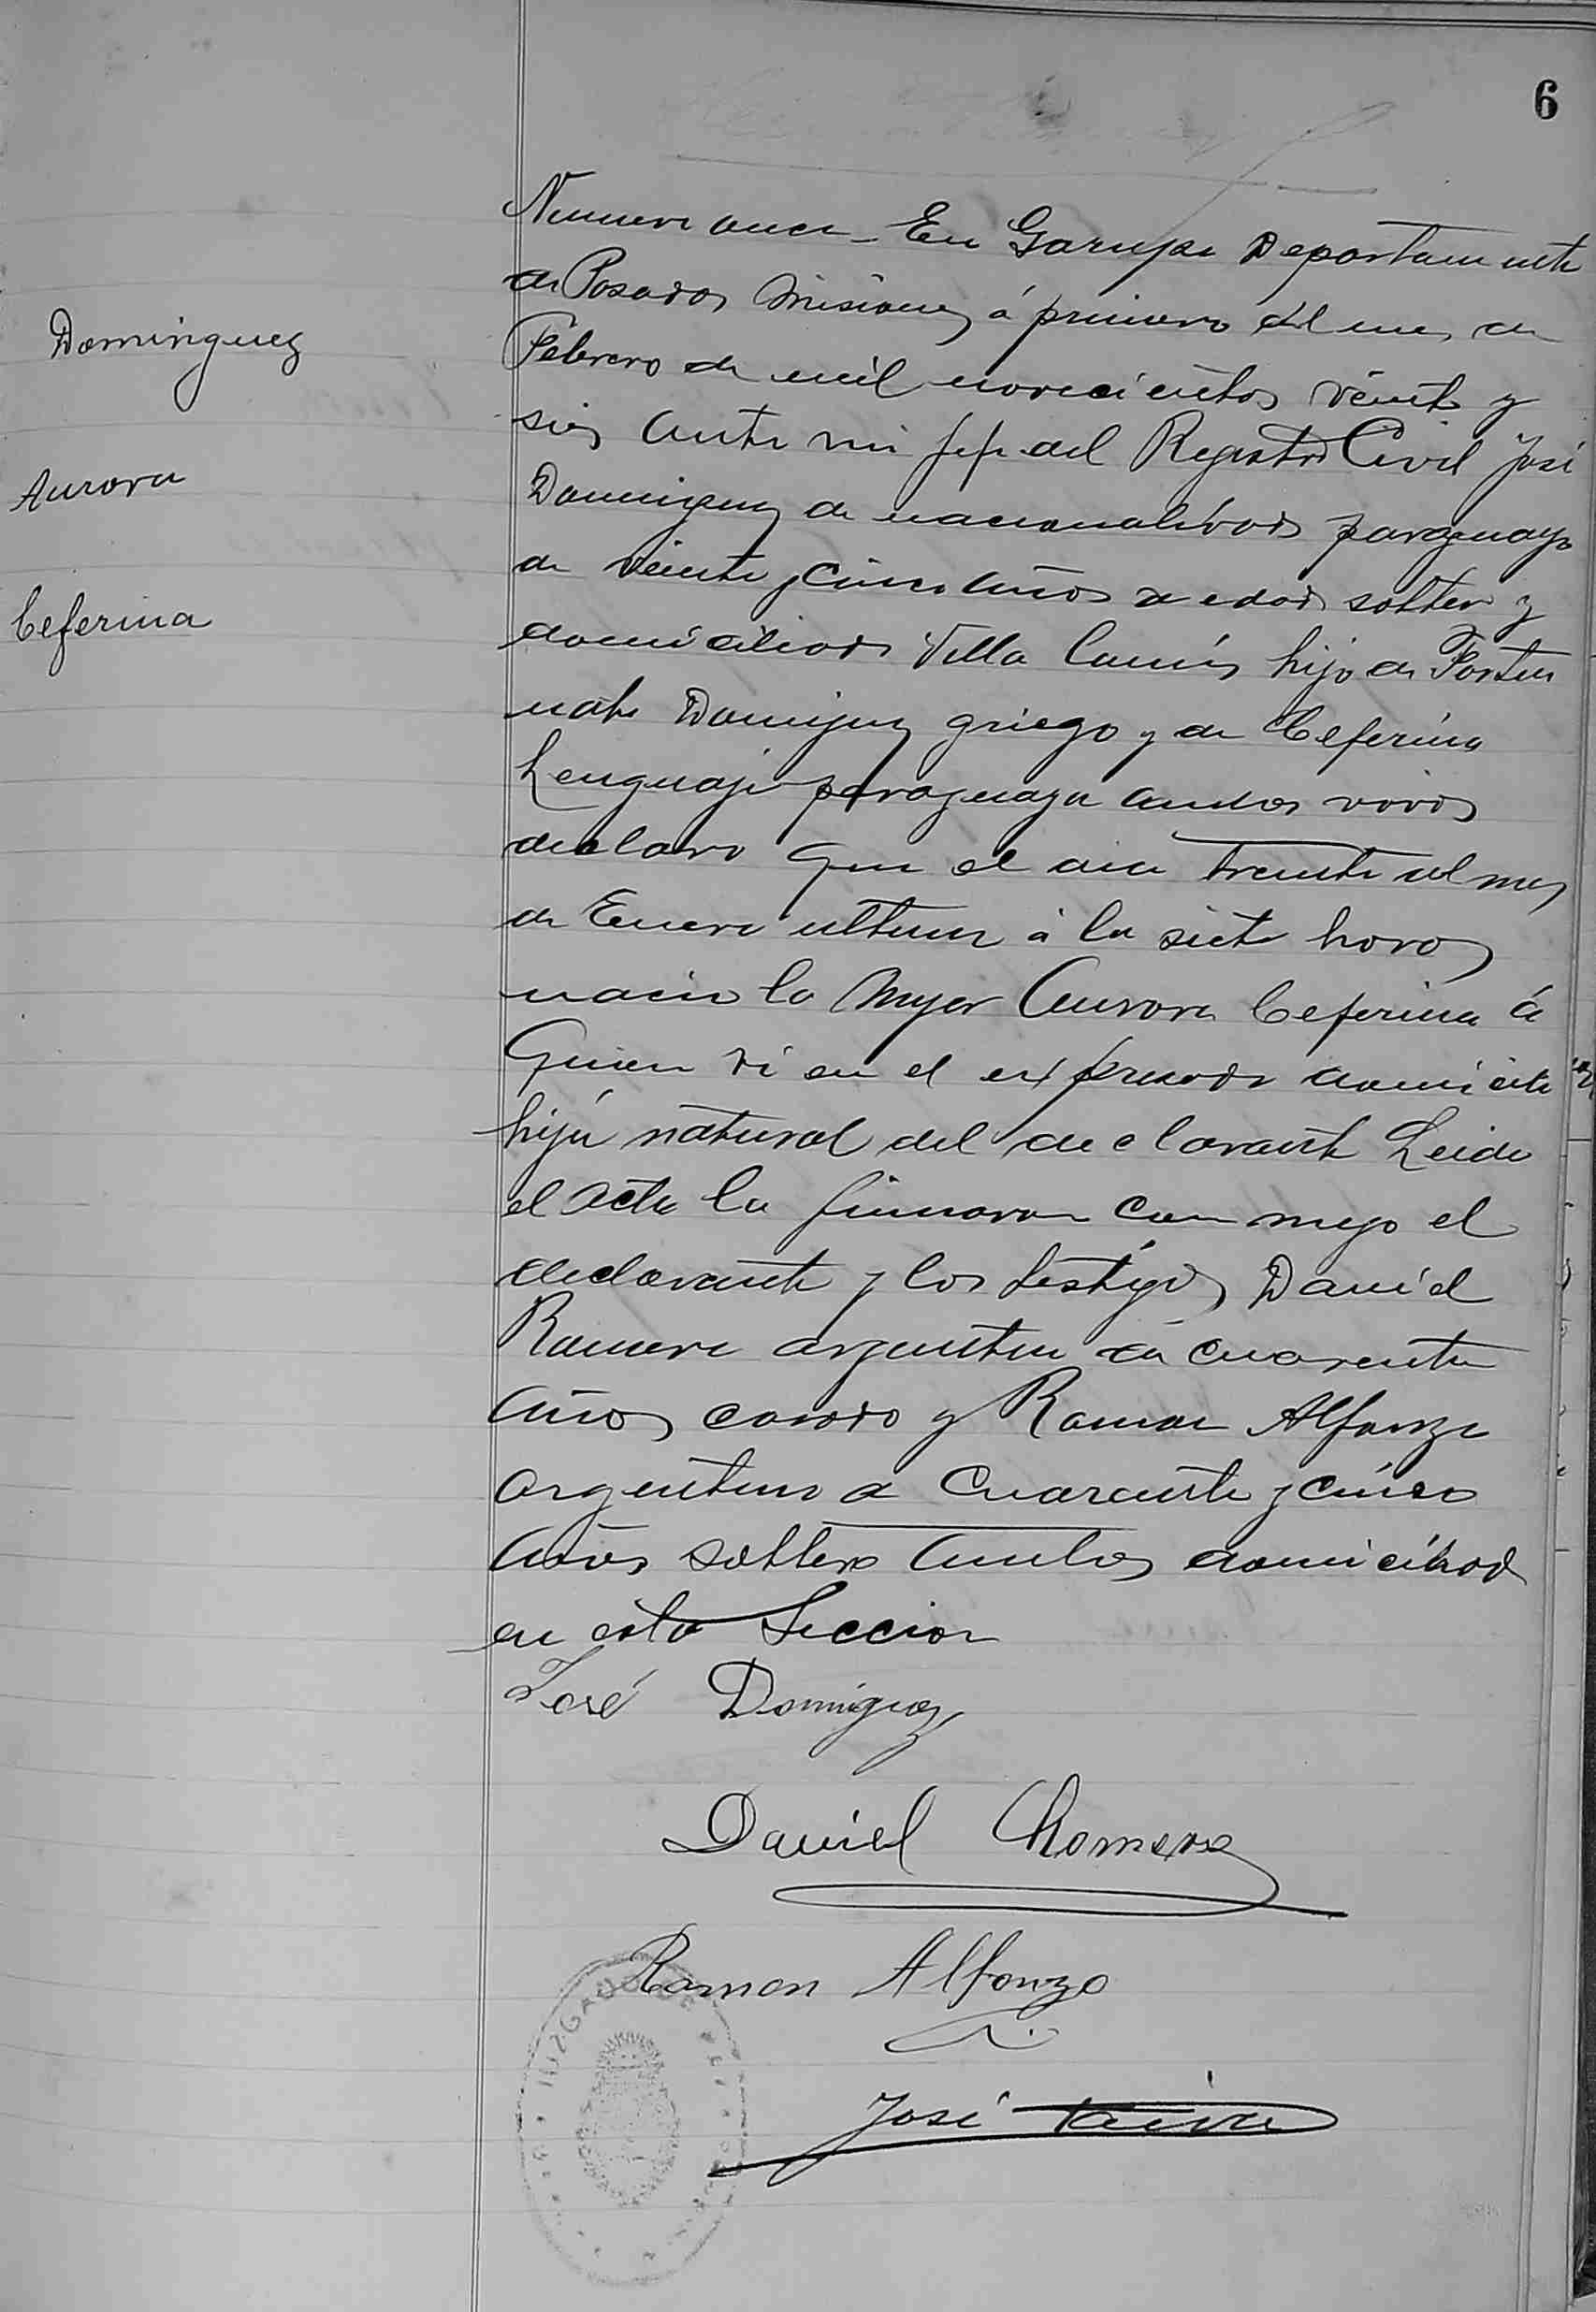 6
Dominguez
Aurora
Ceferina
Numero once - En Garupa Departamento
de Posadas Misiones á primero del mes de
Febrero de mil novecientos veinte y
seis ante mi jefe del Registro Civil José
Dominguez de nacionalidad paraguayo
de veinte y cinco años de edad soltero y
domiciliado Villa Lanús hijo de Fortu
nato Dominguez griego y de Ceferina
Lenguaje paraguaya ambos vivos
declaro que el dia treinta del mes
de Enero ultimo á la siete horas
nacio la mujer Aurora Ceferina á
quien vi en el expresado domicilio
hija natural del declarante Leido
el acta la firmaron conmigo el
declarante y los testigos Daniel
Romero argentino de cuarenta
años casado y Ramon Alfonzo
argentino de cuarenta y cinco
años soltero ambos domiciliados
en esta Seccion
José Dominguez
Daniel Romero
Ramon Alfonzo
José
JUZGADO DE